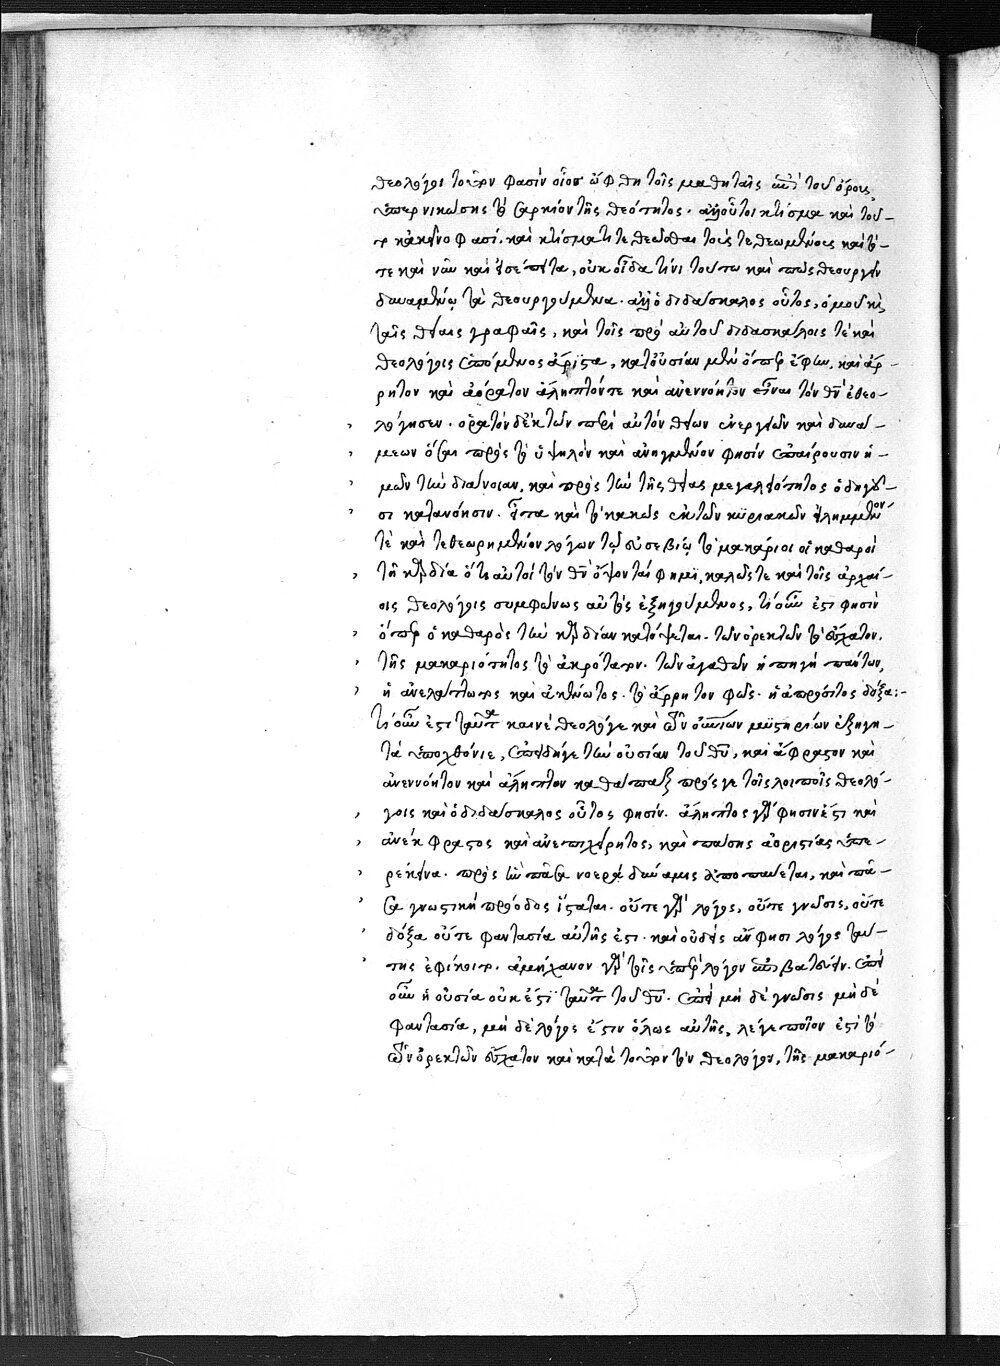 θεολόγοι τοῦτον φασὶν οἷος ὤφθη τοῖς μαθηταῖς ἐπὶ τοῦ ὄρους,
ὑπερνικώσης τὸ σαρκίον τῆς θεότητος. ἀλλ' οὗτοι κτίσμα καὶ τοῦ-
το κἀκεῖνο φασί. καὶ κτίσματι τεθεῶσθαι τούς τε θεωμένους καὶ τό-
τε καὶ νῦν καὶ εἰσέπειτα, οὐκ οἶδα τίνι τούτω καὶ πῶς θεουργεῖν
δυναμένῳ τὰ θεουργούμενα. ἀλλ' ὁ διδάσκαλος οὗτος, ὁμοῦ καὶ
ταῖς θείαις γραφαῖς, καὶ τοῖς πρὸ αὐτοῦ διδασκάλοις τὲ καὶ
θεολόγοις ἑπόμενος ἄριστα, κατουσίαν μὲν ὅπερ ἔφην, καὶ ἄρ-
ρητον καὶ ἀόρατον ἄληπτόν τε καὶ ἀνεννόητον εἶναι τὸν θν ἐθεο-
λόγησεν. ὁρατὸν δὲ ἐκ τῶν περὶ αὐτὸν θείων ἐνεργειῶν καὶ δυνά-
μεων ὅσαι πρὸς τὸ ὑψηλὸν καὶ ἀνηγμένον φησὶν ἐπαίρουσιν ἡ-
μῶν τὴν διάνοιαν, καὶ πρὸς τὴν τῆς θείας μεγαλειότητος ὁδηγοῦ-
σι κατανόησιν. εἶτα καὶ τὸ κακῶς ἐκ τῶν κυριακῶν εἰλημμένον
τὲ καὶ τεθεωρημένον λόγων τῷ δυσσεβίῳ τὸ μακάριοι οἱ καθαροὶ
τῆ καρδία ὅτι αὐτοὶ τὸν θν ὄψονται φημὶ, καλῶς τε καὶ τοῖς ἀρχαί-
οις θεολόγοις συμφώνως αὐτὸς ἐξηγούμενος, τί οὖν ἐστι φησὶν
ὅπερ ὁ καθαρὸς τὴν καρδίαν κατόψεται. τῶν ὀρεκτῶν τὸ ἔσχατον.
τῆς μακαριότητος τὸ ἀκρότατον. τῶν ἀγαθῶν ἡ πηγὴ πάντων,
ἡ ἀνελάττωτος καὶ ἀκένωτος. τὸ ἄρρητον φῶς. ἡ ἀπρόσιτος δόξα:-
τί οὖν ἐστι ταῦτα καινὲ θεολόγε καὶ τῶν θείων μυστηρίων ἐξηγη-
τὰ ὑποχθόνιε, ἐπειδήγε τὴν οὐσίαν τοῦ θυ, καὶ ἄφραστον καὶ
ἀνεννόητον καὶ ἄληπτον καθάπαξ πρός γε τοῖς λοιποῖς θεολό-
γοις καὶ ὁ διδάσκαλος οὗτος φησίν. ἄληπτος γὰρ φησιν ἐστὶ καὶ
ἀνέκφραστος καὶ ἀνεπιχείρητος, καὶ πάσης ἀοριστίας ὑπε-
ρέκεινα. πρὸς ἣν πᾶσα νοερὰ δύναμις ἀποπαύεται, καὶ πᾶ-
σα γνωστικὴ πρόοδος ἵσταται. οὔτε γὰρ λόγος, οὔτε γνῶσις, οὔτε
δόξα οὔτε φαντασία αὐτῆς ἐστι. καὶ οὐδεὶς ἄν φησι λόγος ταύ-
της ἐφίκοιτο. ἀμήχανον γὰρ τοῖς ὑπὲρ λόγον ἐπιβατεύειν. ἐπεὶ
οὖν ἡ οὐσία οὐκ ἔστι ταῦτα τοῦ θυ. ἐπεὶ μὴ δὲ γνῶσις μὴ δὲ
φαντασία, μὴ δὲ λόγος ἔστιν ὅλως αὐτῆς, λέγε ποῖον ἐστὶ τὸ
τῶν ὀρεκτῶν ἔσχατον καὶ κατὰ τοῦτον τὸν θεολόγον, τῆς μακαριό-